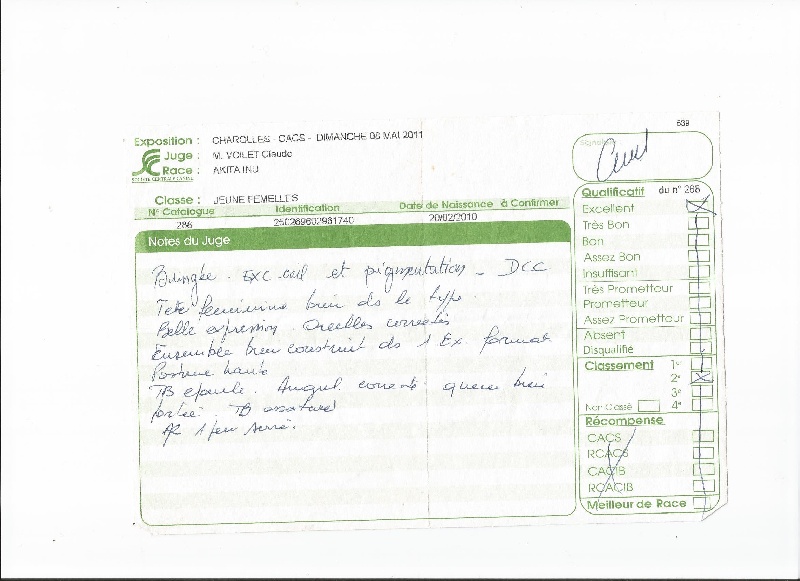 639
Exposition : CHAROLLES - CACS - DIMANCHE 08 MAI 2011
Juge : M. VOILET Claude
Race : AKITA INU
SOCIETE CENTRALE CANINE
Classe : JEUNE FEMELLES
N° Catalogue Identification Date de Naissance à Confirmer
286 250269602961740 20/02/2010
Notes du Juge
Bringée. EXC œil et pigmentation - DCC
Tete feminine bien ds le type.
Belle expression. Oreilles correctes
Ensemble bien construit ds 1 Ex. format
Posture haute
TB epaule. Angul correcte queue bien
portée. TB ossature
AR 1 peu serré.
Signature
Qualificatif du n° 286
Excellent
Très Bon
Bon
Assez Bon
Insuffisant
Très Prometteur
Prometteur
Assez Prometteur
Absent
Disqualifié
Classement 1er
2e
3e
Non Classé 4e
Récompense
CACS
RCACS
CACIB
RCACIB
Meilleur de Race